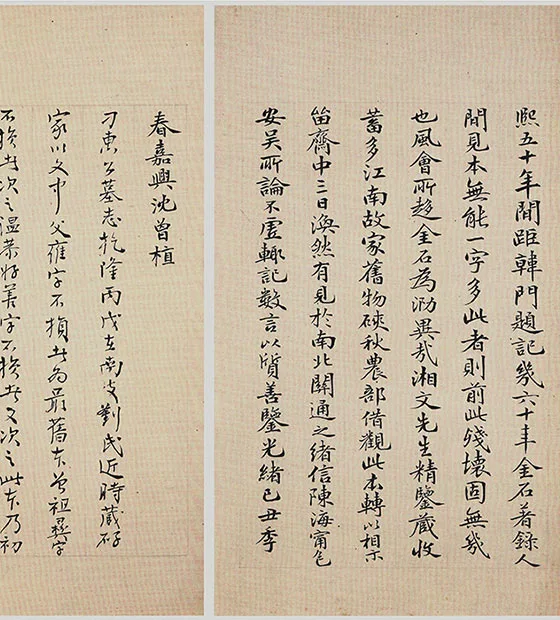 熙五十年間距韓門題記幾六十年金石著錄人
間見本無能一字多此者則前此殘壞固無幾
也風會所趨金石為渺異哉湘文先生精鑒藏收
蓄多江南故家舊物硤秋農部借觀此本轉以相示
笛齋中三日渙然有見於南北關通之緒信陳海甯包
安吴所論不虛輒記數言以質善鑒光緒己丑季
春嘉興沈曾植
刁東公墓志乾隆丙戌在南皮劉氏近時藏
家以文中父雍字不損者為最舊本曾祖彝字
不損者次之溫恭好善字不損者又次之此本乃初